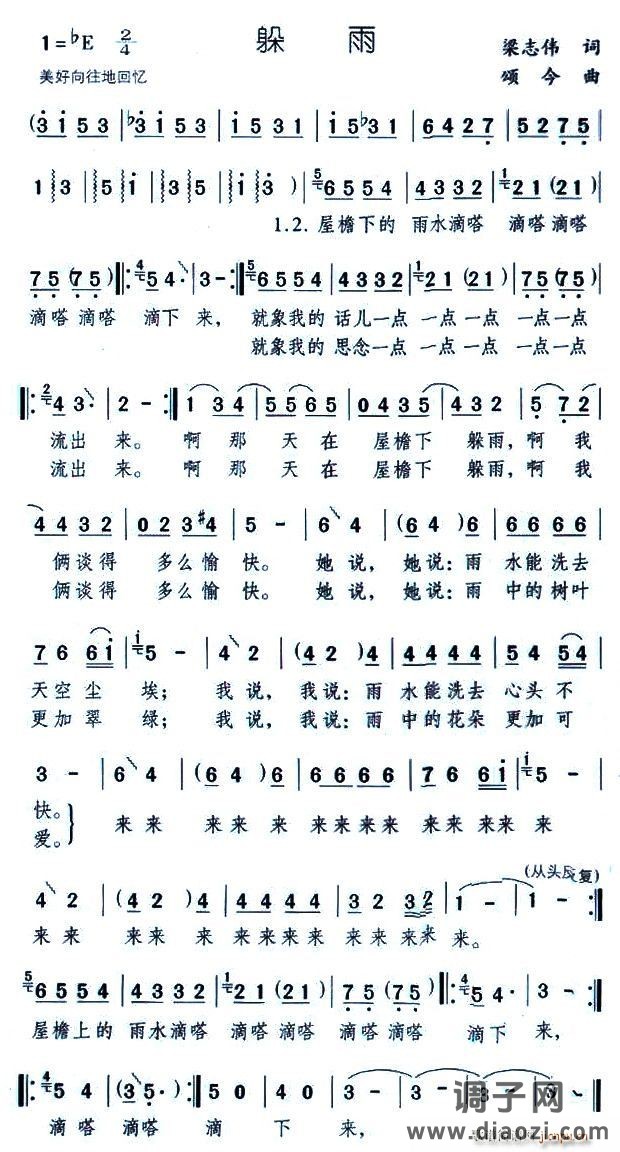 1=♭E 2/4 躲 雨 梁志伟 词
美好向往地回忆 颂 今 曲
(3 i 5 3 | ♭3 i 5 3 | i 5 3 1 | i 5 ♭3 1 | 6 4 2 7 | 5 2 7 5 |
1 3 | 5 i | 3 5 | i 3) | 6 5 5 4 | 4 3 3 2 | 2 1 (2 1) |
1.2. 屋檐下的 雨水滴嗒 滴嗒滴嗒
7 5 (7 5) |: 5 4· | 3 - :| 6 5 5 4 | 4 3 3 2 | 2 1 (2 1) | 7 5 (7 5) |
滴嗒滴嗒 滴下 来， 就象我的 话儿一点 一点一点 一点一点
就象我的 思念一点 一点一点 一点一点
|: 4 3· | 2 - :| 1 3 4 | 5 5 6 5 | 0 4 3 5 | 4 3 2 | 5 7 2 |
流出 来。 啊 那 天 在 屋檐下 躲雨，啊 我
流出 来。 啊 那 天 在 屋檐下 躲雨，啊 我
4 4 3 2 | 0 2 3 #4 | 5 - | 6 4 | (6 4) 6 | 6 6 6 6 |
俩谈得 多么愉 快。 她 说， 她说：雨 水能洗去
俩谈得 多么愉 快。 她 说， 她说：雨 中的树叶
7 6 6 i | 5 - | 4 2 | (4 2) 4 | 4 4 4 4 | 5 4 5 4 |
天空尘 埃； 我 说， 我说：雨 水能洗去 心头 不
更加翠 绿； 我 说， 我说：雨 中的花朵 更加 可
3 - | 6 4 | (6 4) 6 | 6 6 6 6 | 7 6 6 i | 5 - |
快。
爱。 来 来 来来 来 来来来来 来来来 来
(从头反复)
4 2 | (4 2) 4 | 4 4 4 4 | 3 2 3 2 | 1 - | 1 - :|
来 来 来来 来 来来来来 来来来来 来。
6 5 5 4 | 4 3 3 2 | 2 1 (2 1) | 7 5 (7 5) |: 5 4· | 3 - :|
屋檐上的 雨水滴嗒 滴嗒滴嗒 滴嗒滴嗒 滴下 来，
|: 5 4 | (3 5·) :| 5 0 | 4 0 | 3 - | 3 - | 3 - | 3 0 |
滴嗒 滴嗒 滴 下 来，
调子网
www.diaozi.com